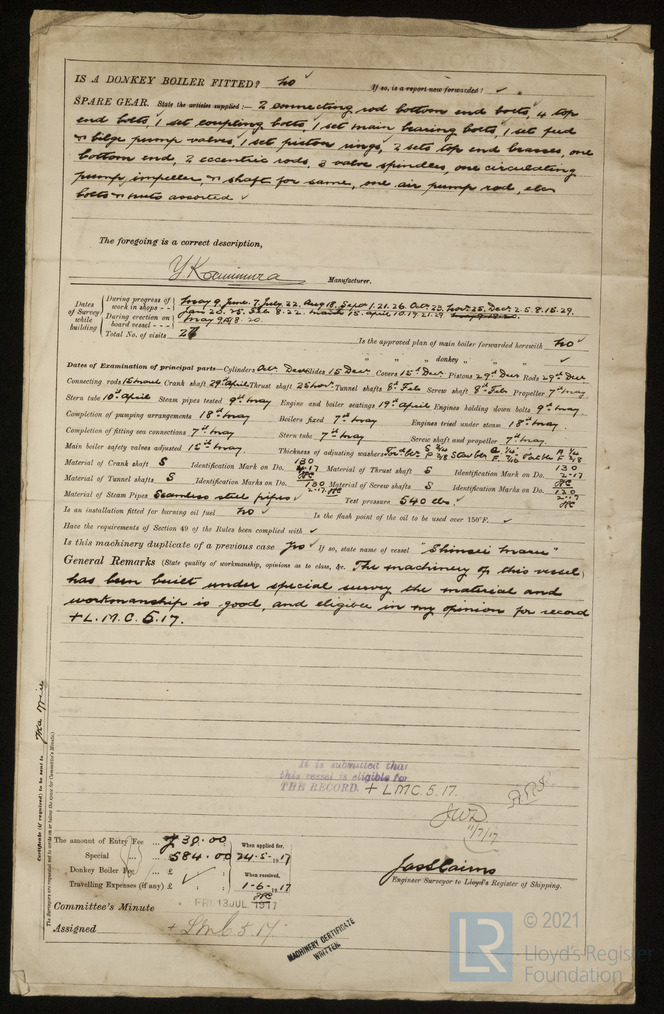 IS A DONKEY BOILER FITTED? no ✓ If so, is a report now forwarded? ✓
SPARE GEAR. State the articles supplied:— 2 connecting rod bottom end bolts, 4 top
end bolts, 1 set coupling bolts, 1 set main bearing bolts, 1 set feed
& bilge pump valves, 1 set piston rings, 2 sets top end brasses, one
bottom end, 2 eccentric rods, 3 valve spindles, one circulating
pump impeller, & shaft for same, one air pump rod, also
bolts & nuts assorted ✓
The foregoing is a correct description,
Y. Kawimura Manufacturer.
Dates of Survey while building
During progress of work in shops -- May 9. June 7. July 22. Aug 18. Sept 1. 21. 26. Oct 23. Nov 25. Dec 2. 5. 8. 15. 29.
During erection on board vessel --- Jan 20. 25. Feb 8. 22. March 15. April 10. 19. 21. 29
May 9. 18. 20.
Total No. of visits 27
Is the approved plan of main boiler forwarded herewith no ✓
" " " donkey " " ✓
Dates of Examination of principal parts—Cylinders Oct Dec Slides 15 Dec Covers 15th Dec Pistons 29th Dec Rods 29th Dec
Connecting rods Crank shaft 29th April Thrust shaft 25 Nov. Tunnel shafts 8th Feb Screw shaft 8th Feb Propeller 7th May
Stern tube 10th April Steam pipes tested 9th May Engine and boiler seatings 19th April Engines holding down bolts 9th May
Completion of pumping arrangements 18th May Boilers fixed 7th May Engines tried under steam 18th May
Completion of fitting sea connections 7th May Stern tube 7th May Screw shaft and propeller 7th May
Main boiler safety valves adjusted 15th May. Thickness of adjusting washers
Material of Crank shaft S Identification Mark on Do. 130 Material of Thrust shaft S Identification Mark on Do. 130 2-17
Material of Tunnel shafts S Identification Marks on Do. 130 2-17 Material of Screw shafts S Identification Marks on Do. 130 2-17
Material of Steam Pipes Seamless steel pipes ✓ Test pressure 540 lbs. ✓
Is an installation fitted for burning oil fuel no ✓ Is the flash point of the oil to be used over 150°F. ✓
Have the requirements of Section 49 of the Rules been complied with ✓
Is this machinery duplicate of a previous case Yes ✓ If so, state name of vessel "Shinsei Maru"
General Remarks (State quality of workmanship, opinions as to class, &c. The machinery of this vessel
has been built under special survey the material and
workmanship is good, and eligible in my opinion for record
+ L.M.C. 5.17.
Certificate (if required) to be sent to
The Surveyors are requested not to write on or below the space for Committee's Minute.
It is submitted that
this vessel is eligible for
THE RECORD. + LMC. 5. 17.
JWD
11/7/17
The amount of Entry Fee ... 30.00 When applied for,
Special ... 584.00 24.5.1917
Donkey Boiler Fee ... £ ✓ When received,
Travelling Expenses (if any) £ 1-6-1917
Jas Cairns
Engineer Surveyor to Lloyd's Register of Shipping.
Committee's Minute FRI 13 JUL 1917
Assigned + LMC 5.17.
MACHINERY CERTIFICATE
WRITTEN.
LR © 2021
Lloyd's Register
Foundation